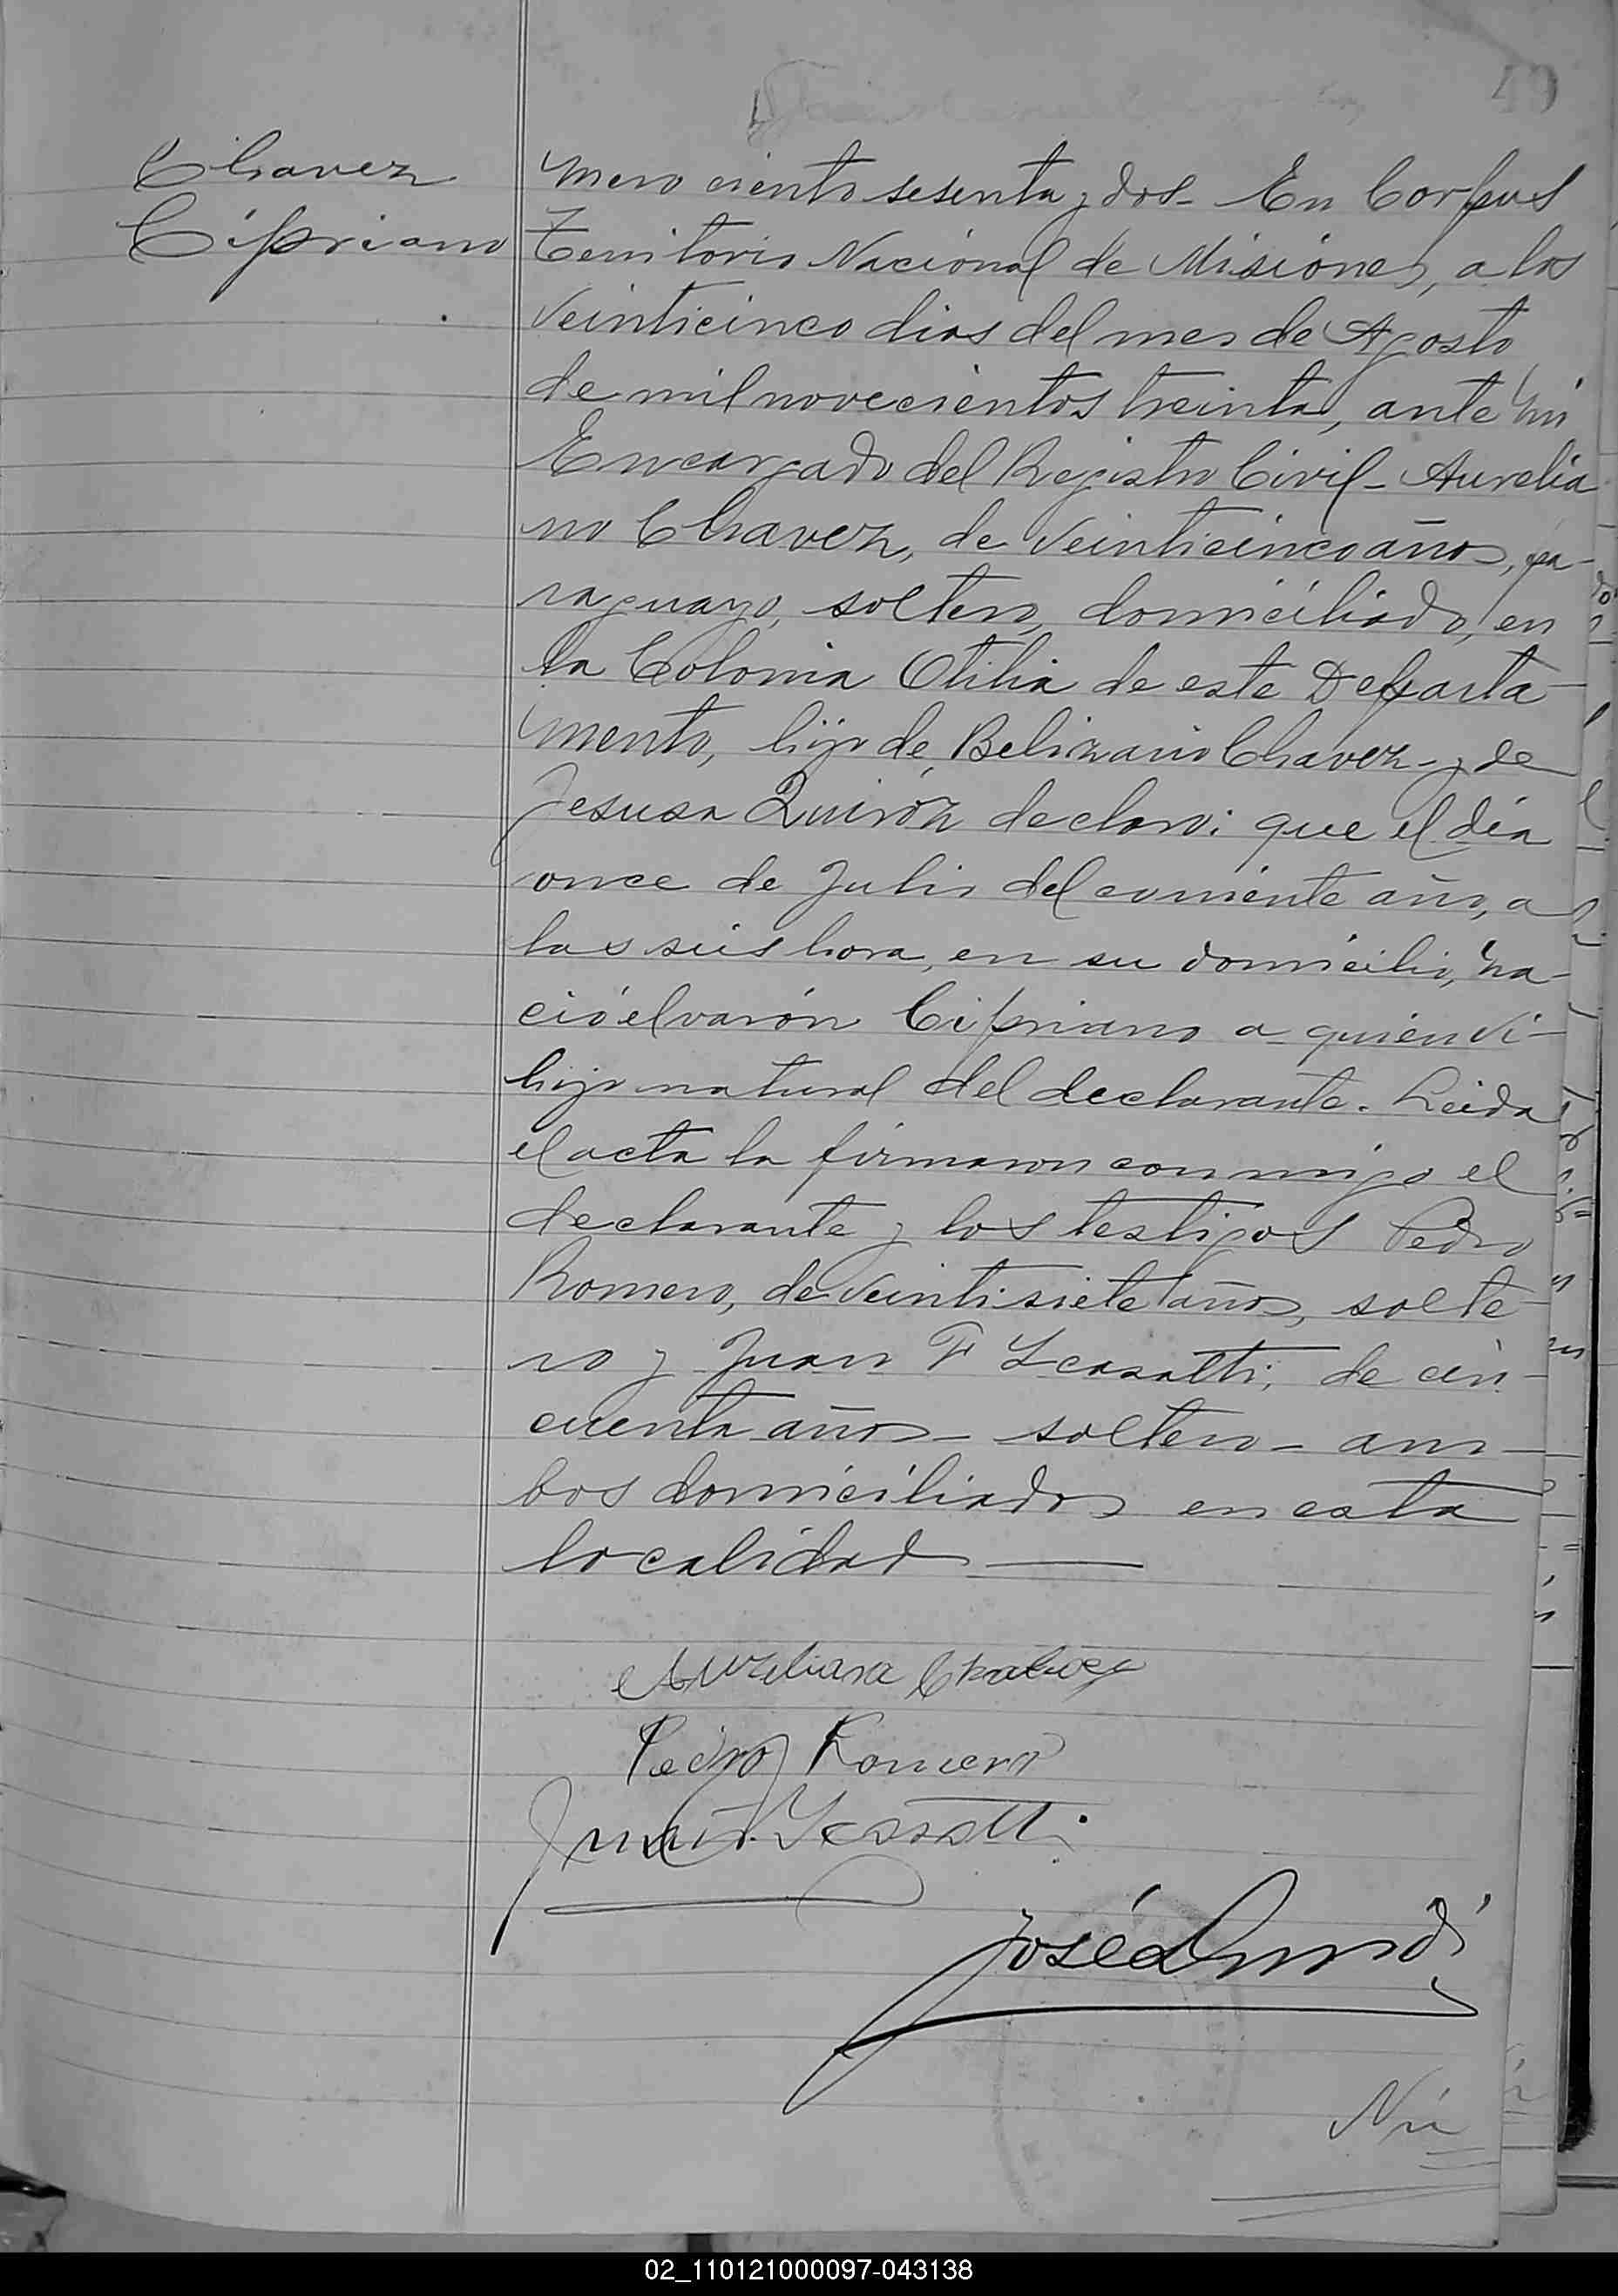 49
Chavez
Cipriano
mero ciento sesenta y dos - En Corpus
Territorio Nacional de Misiones, a los
veinticinco dias del mes de Agosto
de mil novecientos treinta, ante mi
Encargado del Registro Civil - Aurelia
no Chavez, de veinticinco años, pa-
raguayo, soltero, domiciliado, en
la Colonia Otilia de este Departa-
mento, hijo de Belizario Chavez y de
Jesusa Quiróz declaro: que el día
once de Julio del corriente año, a
las seis hora, en su domicilio, na-
ció el varón Cipriano a quien vi-
hijo natural del declarante. Leida
el acta la firmaron conmigo el
declarante y los testigos Pedro
Romero, de veintisiete años, solte-
ro y Juan F de cin-
cuenta años - soltero - am-
bos domiciliados en esta
localidad
Aureliana
Pedro Romero
Juan
José
Nú
02_110121000097-043138